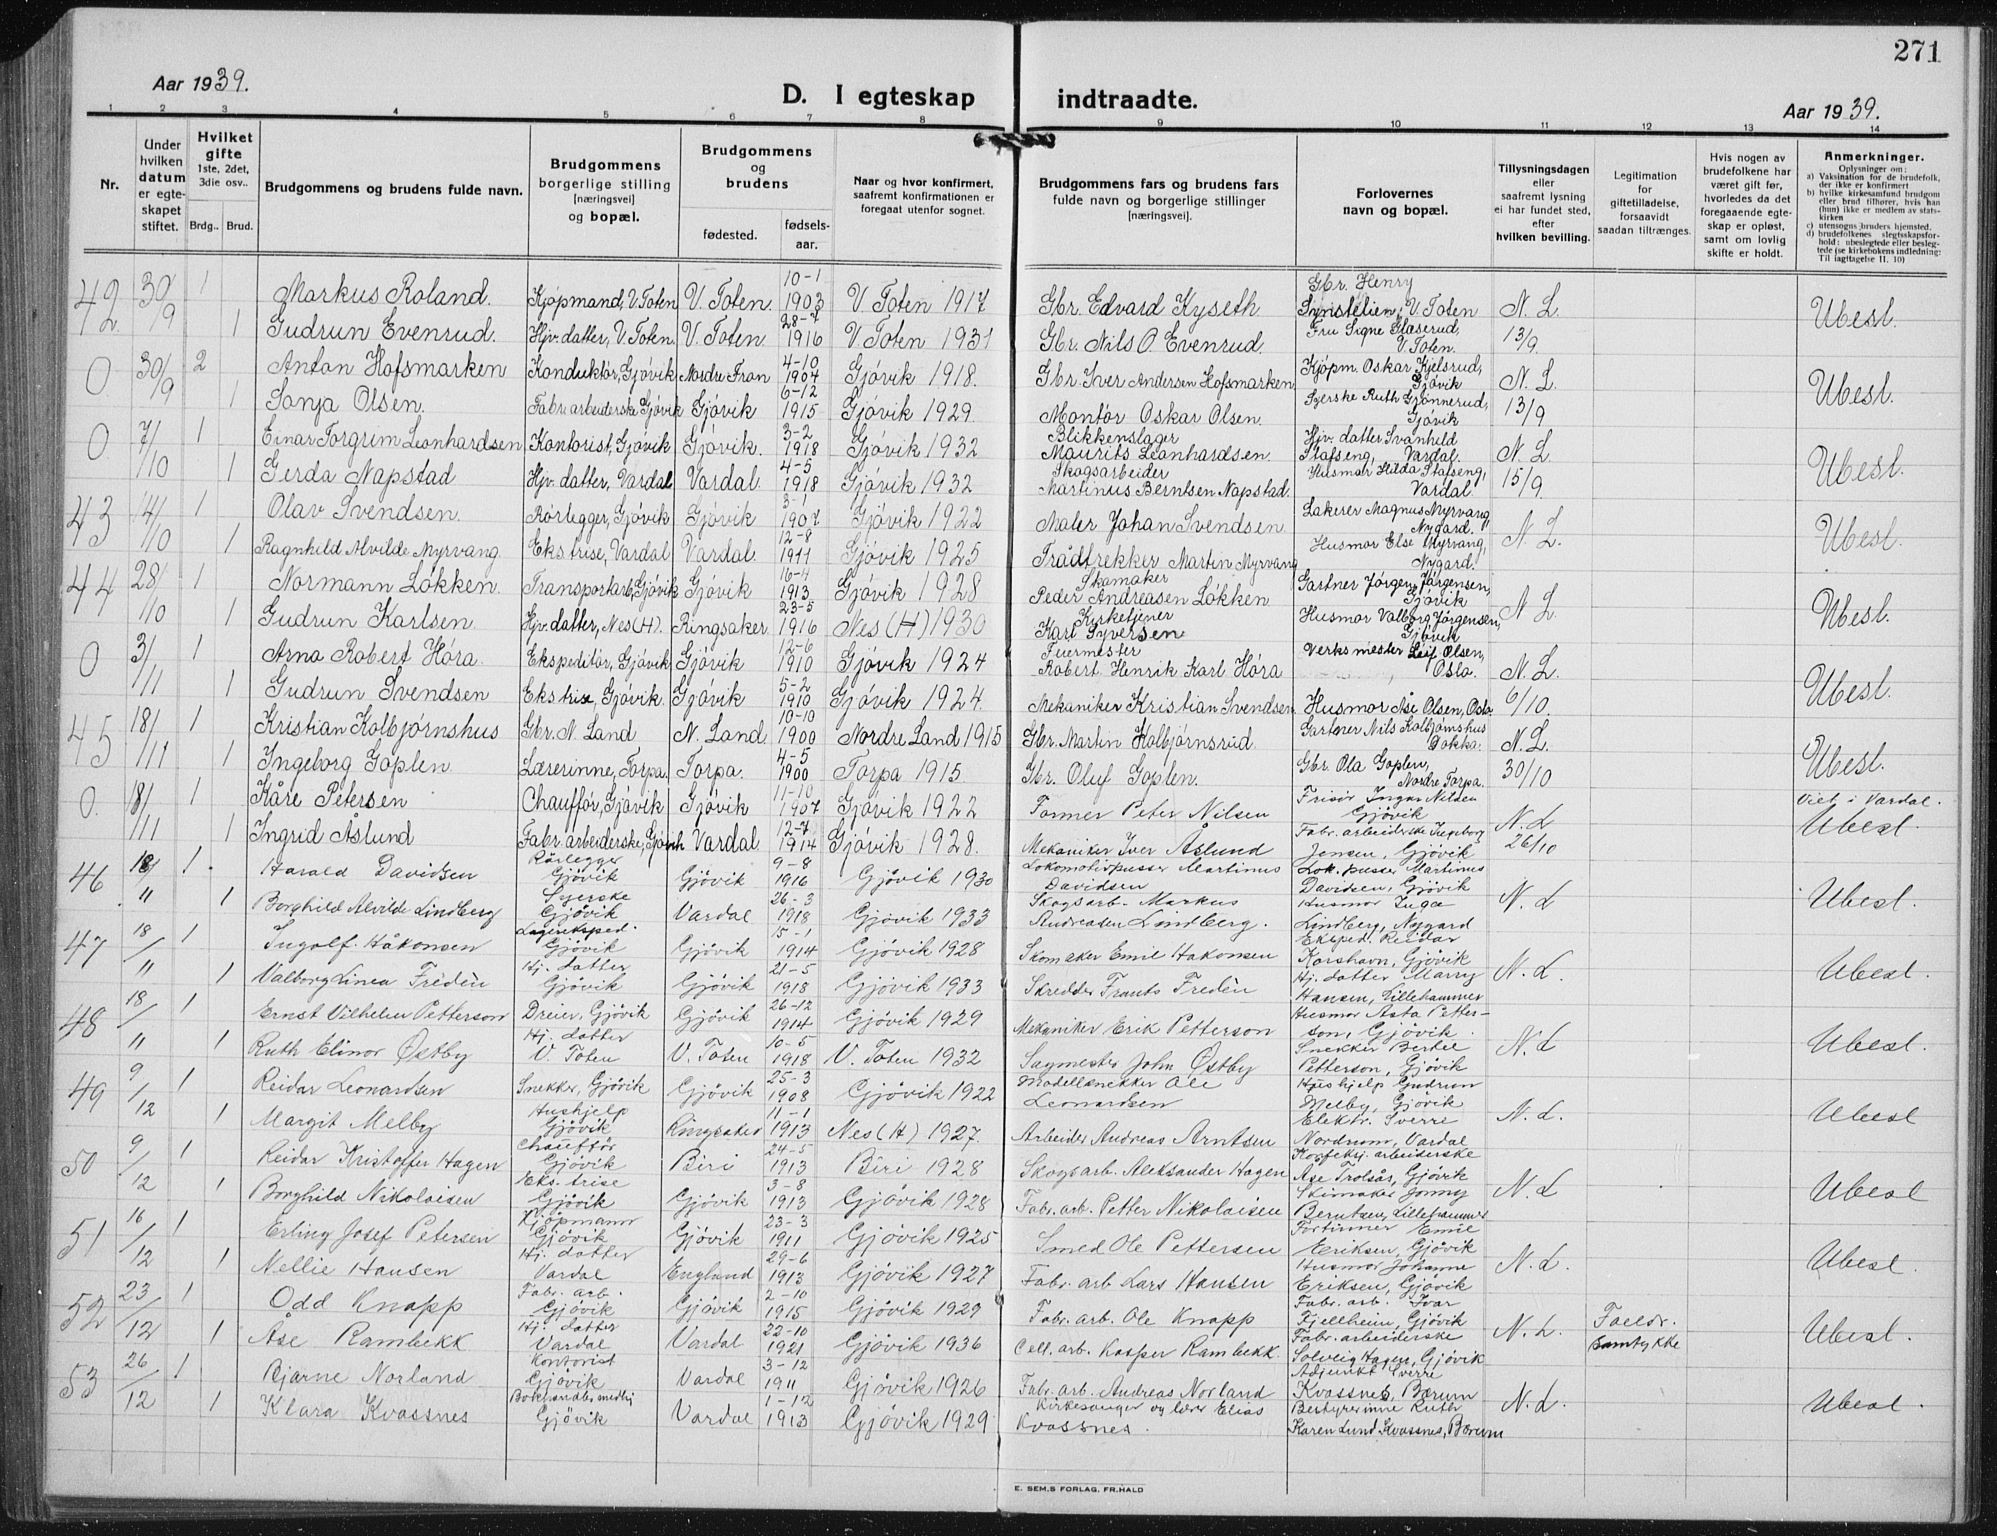 271
Aar 1939.
D. I egteskap indtraadte.
Aar 1939.
1 2 3 4 5 6 7 8 9 10 11 12 13 14
Nr.
Under hvilken datum er egteskapet stiftet.
Hvilket gifte 1ste, 2det, 3die osv..
Brdg.. Brud.
Brudgommens og brudens fulde navn.
Brudgommens borgerlige stilling [næringsvei] og bopæl.
Brudgommens og brudens
fødested. fødsels-aar.
Naar og hvor konfirmert, saafremt konfirmationen er foregaat utenfor sognet.
Brudgommens fars og brudens fars fulde navn og borgerlige stillinger [næringsvei].
Forlovernes navn og bopæl.
Tillysningsdagen eller saafremt lysning ei har fundet sted, efter hvilken bevilling.
Legitimation for giftetilladelse, forsaavidt saadan tiltrænges.
Hvis nogen av brudefolkene har været gift før, hvorledes da det foregaaende egteskap er opløst, samt om lovlig skifte er holdt.
Anmerkninger.
Oplysninger om:
a) Vaksination for de brudefolk, der ikke er konfirmert
b) hvilke kirkesamfund brudgom eller brud tilhører, hvis han (hun) ikke er medlem av statskirken
c) utensogns bruders hjemsted.
d) brudefolkenes slegtsskapsforhold: ubeslegtede eller beslegtede (se kirkebokens indledning: Til iagttagelse II. 10)
42 30/9 1 Markus Roland. Kjøpmand, V. Toten V. Toten. 10-1 1903 V. Toten 1917 Gbr. Edvard Kyseth Gbr. Henry Synstelien, V. Toten N. L. Ubesl.
1 Gudrun Evenrud. Hjv. datter, V. Toten. V. Toten. 1916 V. Toten 1931 Gbr. Nils O. Evenrud. Fru Signe Glæserud, V. Toten. 13/9.
0 30/9 2 Anton Hofsmarken Konduktör, Gjövik Nordre Fron 4-10 1904 Gjövik 1918. Gbr. Iver Andersen Hofsmarken Kjöpm. Oskar Kjelsrud, Gjövik N. L. Ubesl.
1 Sonja Olsen. Fabr. arbeiderske Gjövik Gjövik 6-12 1915 Gjövik 1929. Montör Oskar Olsen. Syerske Ruth Grönnerud, Gjövik 13/9
0 7/10 1 Einar Torgrim Leonhardsen Kontorist, Gjövik Gjövik. 3-2 1918 Gjövik 1932 Blikkenslager Maurits Leonhardsen. Hjv. datter Svanhild Stafseng, Vardal. N. L. Ubesl.
1 Gerda Napstad Hjv. datter, Vardal Vardal. 4-5 1918 Gjövik 1932 Skogsarbeider Martinus Berntsen Napstad. Husmor Hilda Stafseng, Vardal 15/9.
43 14/10 1 Olav Svendsen. Rörlegger, Gjövik Gjövik 3-1 1907 Gjövik 1922 Maler Johan Svendsen Lakerer Magnus Myrvang, Nygard. N. L. Ubesl.
1 Ragnhild Alvilde Myrvang Ekstrise, Vardal Vardal. 12-8 1911 Gjövik 1925 Trådtrekker Martin Myrvang Husmor Else Myrvang, Nygard.
44 28/10 1 Normann Lökken. Transportarb, Gjövik Gjövik 16-4 1913 Gjövik 1928 Skomaker Peder Andreasen Lökken Gartner Jörgen Jörgensen, Gjövik N. L. Ubesl.
1 Gudrun Karlsen. Hjv. datter, Nes (H). Ringsaker 23-5 1916 Nes (H) 1930 Kirketjener Karl Syversen Husmor Valborg Jörgensen, Gjövik
0 3/11 1 Arno Robert Hóra. Ekspeditör, Gjövik Gjövik 12-6 1910 Gjövik 1924 Fuermester Robert Henrik Karl Hóra Verksmester Leif Olsen, Oslo. N. L. Ubesl.
1 Gudrun Svendsen Ekstrise, Gjövik. Gjövik 5-2 1910 Gjövik 1924. Mekaniker Kristian Svendsen. Husmor Åse Olsen, Oslo. 6/10.
45 18/11 1 Kristian Kolbjörnshus Gbr. N. Land N. Land. 10-10 1900 Nordre Land 1915 Gbr. Martin Kolbjörnsrud. Gartner Nils Kolbjörnshus Dokka. N. L. Ubesl.
1 Ingeborg Goplen. Lærerinne, Torpa. Torpa. 4-5 1900 Torpa 1915. Gbr. Oluf Goplen. Gbr. Ola Goplen, Nordre Torpa. 30/10
0. 18/11 1 Kåre Petersen Chauffór, Gjövik Gjövik 11-10 1907 Gjövik 1922 Former Peter Nilsen Frisör Ingar Nilsen Gjövik N. L Viet i Vardal. Ubesl.
1 Ingrid Åslund Fabr. arbeiderske, Gjövik Vardal 12-7 1914 Gjövik 1928. Mekaniker Iver Åslund Fabr. arbeiderske Ingeborg Jensen, Gjövik 26/10
46 18/11 1. Harald Davidsen Rörlegger Gjövik Gjövik 9-8 1916 Gjövik 1930 Lokomotivpusser Martinus Davidsen Lok. pusser Martinus Davidsen, Gjövik N. L Ubesl.
1 Borghild Alvilde Lindberg Syerske Gjövik Vardal 26-3 1918 Gjövik 1933 Skogsarb. Markus Andreasen Lindberg. Husmor Inga Lindberg, Nygard
47 18/11 1 Ingolf. Håkonsen Lagereksped. Gjövik Gjövik 15-1 1914 Gjövik 1928 Skomaker Emil Hakonsen Eksped. Reidar Korshavn, Gjövik N. L. Ubesl.
1 Valborg Linea Fredèn Hj. datter Gjövik Gjövik 21-5 1918 Gjövik 1933 Skredder Frants Fredèn Hj. datter Marry Hansen, Lillehammer
48 18/11 1 Ernst Vilhelm Petterson Dreier, Gjövik Gjövik 26-12 1914 Gjövik 1929 Mekaniker Erik Petterson Husmor Asta Petterson, Gjövik N. L Ubesl.
1 Ruth Elinor Østby Hj. datter V. Toten V. Toten 10-5 1918 V. Toten 1932 Sagmester John Østby Snekker Bertel Petterson, Gjövik
49 9/12 1 Reidar Leonardsen Snekker, Gjövik Gjövik 25-3 1908 Gjövik 1922 Modellsnekker Ole Leonardsen Hushjelp Gudrun Melby, Gjövik N. L. Ubesl
1 Margit Melby Hushjelp Gjövik Ringsaker 11-1 1913 Nes (H) 1927. Arbeider Andreas Arntsen Elektr. Sverre Nordrum, Vardal
50 9/12 1 Reidar Kristoffer Hagen Chaufför Gjövik Biri 24-5 1913 Biri 1928 Skogsarb. Aleksander Hagen Konfeksj. arbeiderske Åse Trolsås, Gjövik N. L Ubesl
1 Borghild Nikolaisen Eks. trise Gjövik Gjövik 3-8 1913 Gjövik 1928 Fabr. arb. Petter Nikolaisen Skimaker Jonny Berntsen, Lillehammer
51 16/12 1 Erling Josef Petersen Kjöpmann Gjövik Gjövik 23-3 1911 Gjövik 1925 Smed Ole Pettersen Fortinner Emil Eriksen, Gjövik N. L. Ubesl.
1 Nellie Hansen Hj. datter Vardal England 29-6 1913 Gjövik 1927 Fabr. arb Lars Hansen Husmor Johanne Eriksen, Gjövik
52 23/12 1 Odd Knapp Fabr. arb. Gjövik Gjövik 2-10 1915 Gjövik 1929 Fabr. arb. Ole Knapp Fabr. arb. Ivar Fjellheim, Gjövik N. L. Foeldr. Samtykke Ubesl.
1 Åse Rambekk Hj. datter Vardal Vardal 22-10 1921 Gjövik 1936 Cell. arb. Kasper Rambekk. Fabr. arbeiderske Solveig Hagen, Gjövik
53 26/12 1 Bjarne Norland Kontorist Gjövik Vardal 3-12 1911 Gjövik 1926 Fabr. arb. Andreas Norland Adjunkt Sverre Kvassnes, Bærum N. L. Ubesl.
1 Klara Kvassnes Gjövik Vardal 1-12 1913 Gjövik 1929 Kirkesanger og lærer Elias Kvassnes. Bestyrerinne Karen Lund Kvassnes, Bærum
E. SEM.S FORLAG, FR.HALD